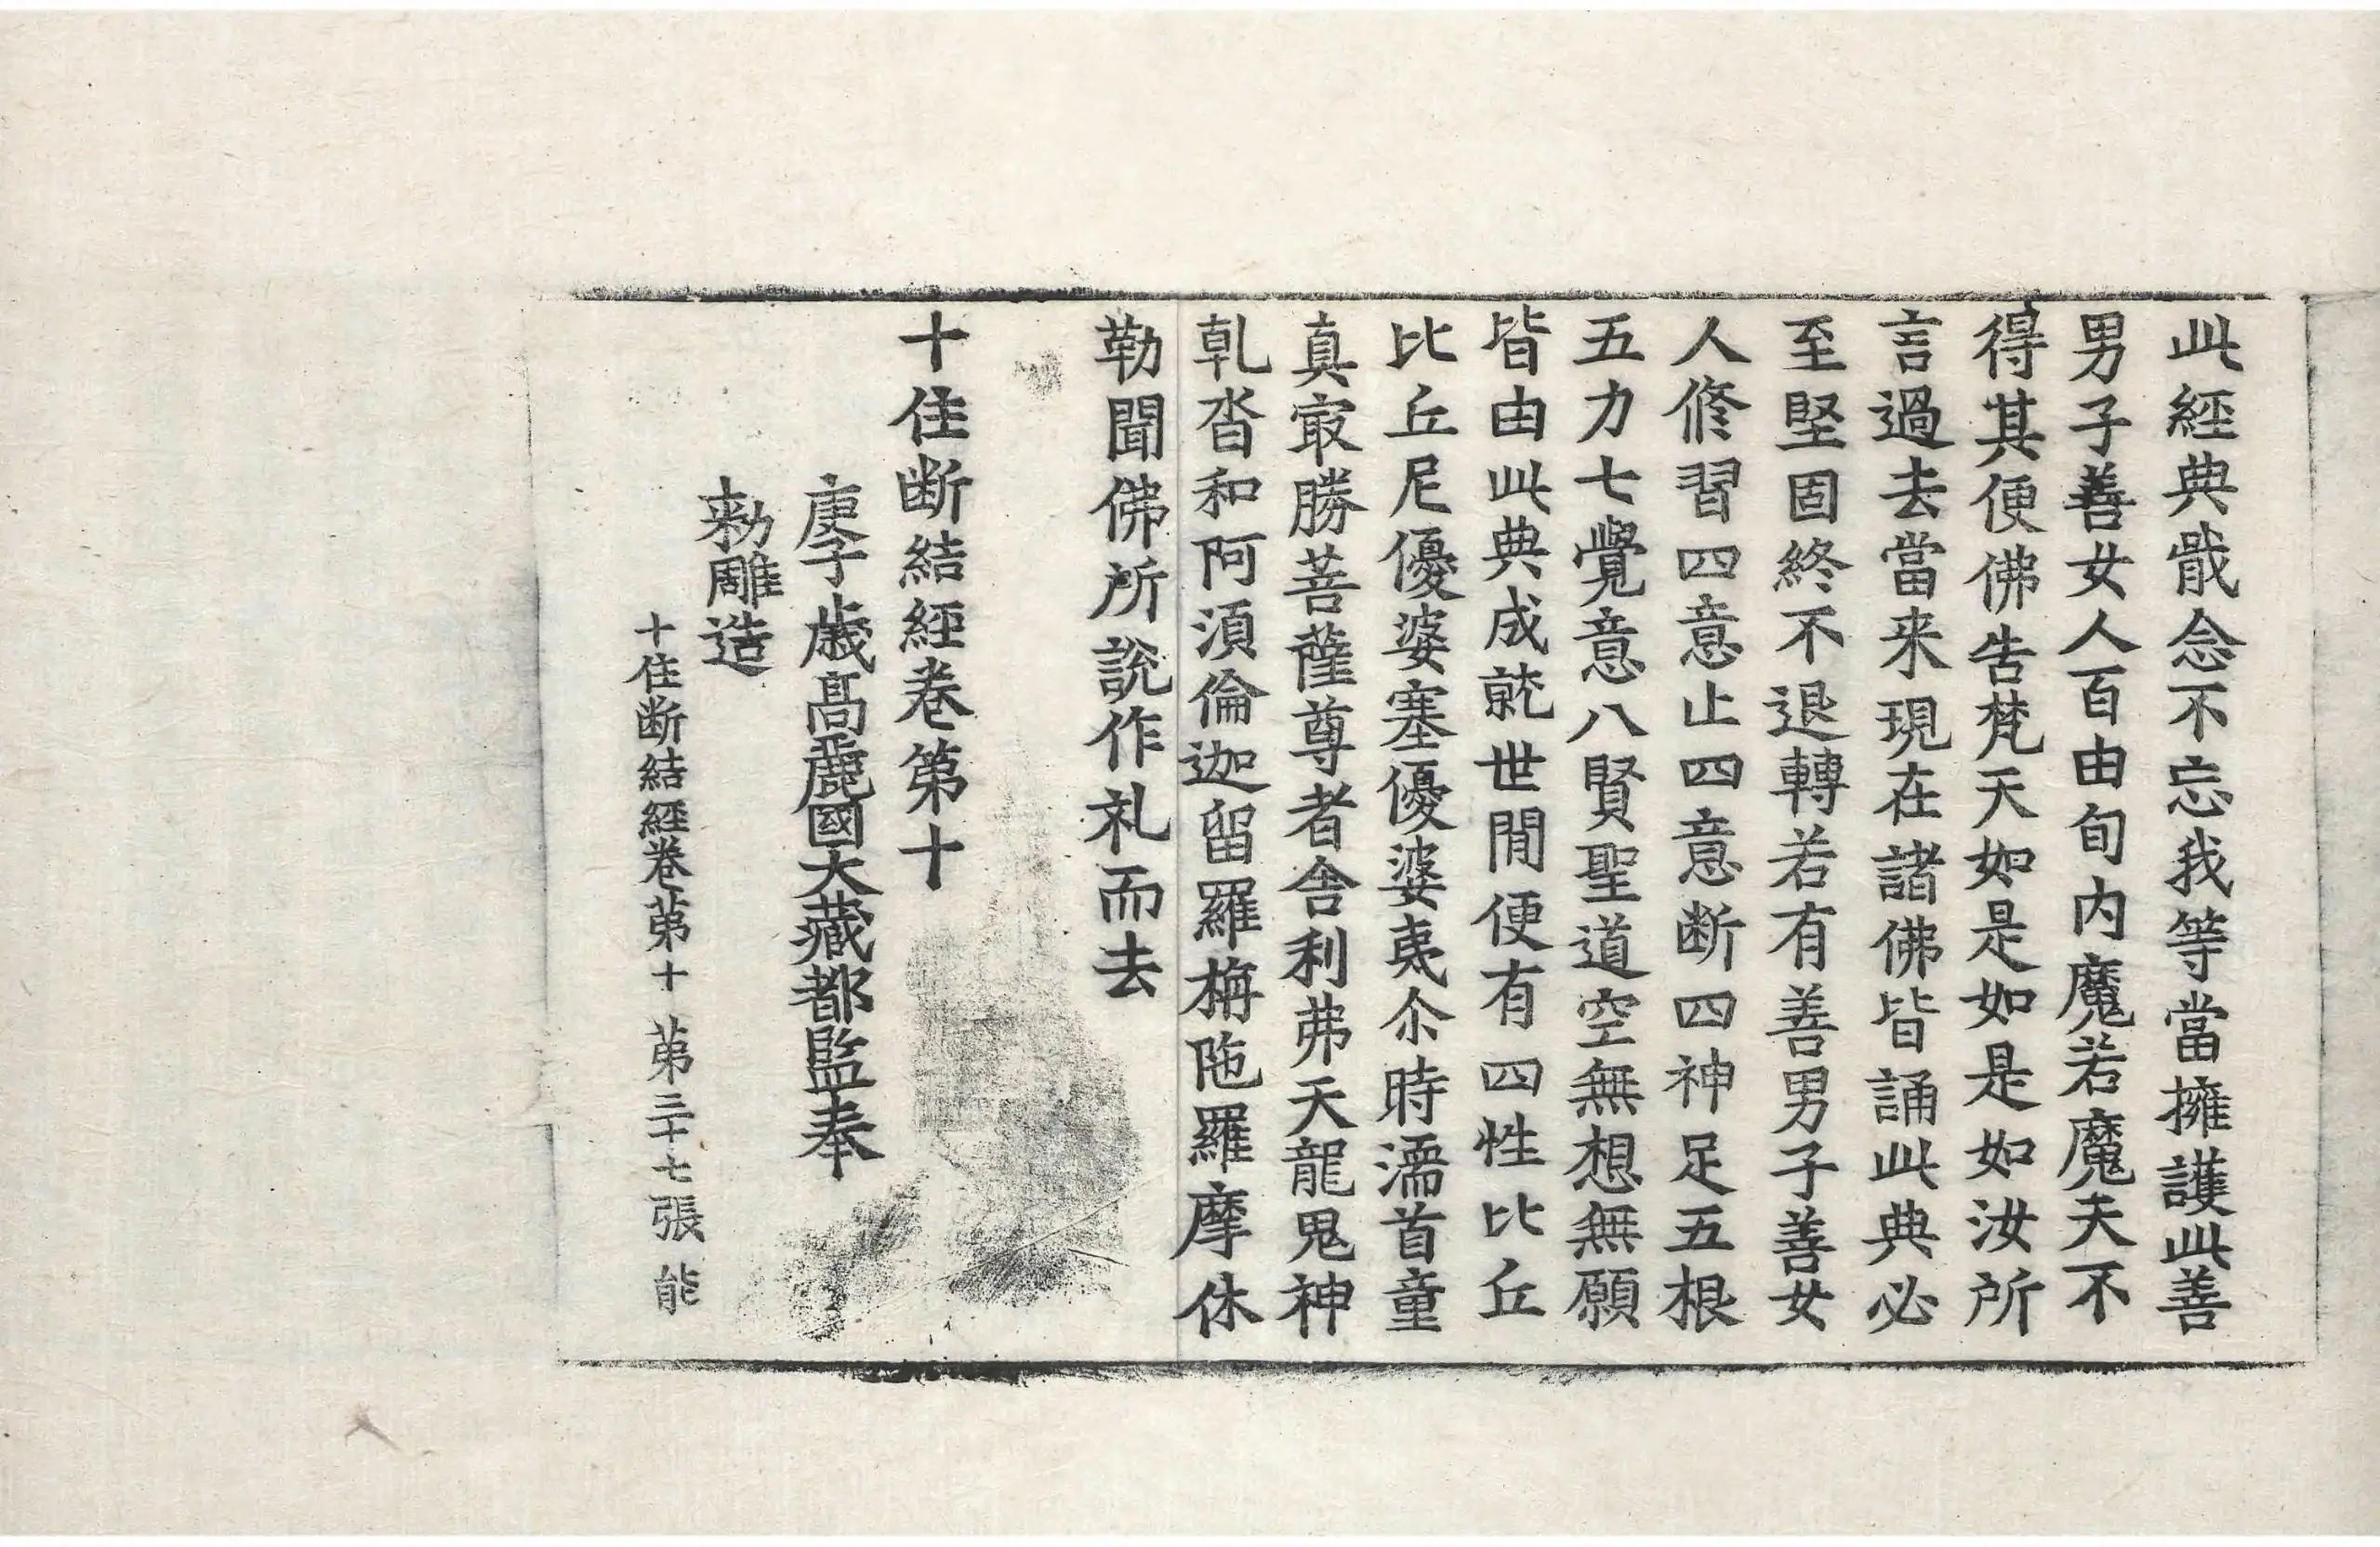 此經典戢念不忘我等當擁護此善
男子善女人百由旬内魔若魔天不
得其便佛告梵天如是如是如汝所
言過去當来現在諸佛皆誦此典必
至堅固終不退轉若有善男子善女
人修習四意止四意断四神足五根
五力七覺意八賢聖道空無想無願
皆由此典成就世間便有四性比丘
比丘尼優婆塞優婆夷尒時濡首童
真㝡勝菩薩尊者舎利弗天龍鬼神
乹沓和阿湏倫迦留羅栴陁羅摩休
勒聞佛所說作礼而去
十住断結經卷第十
庚子歳高麗國大藏都監奉
勑雕造
十住断結經卷苐十 苐三十七張 能